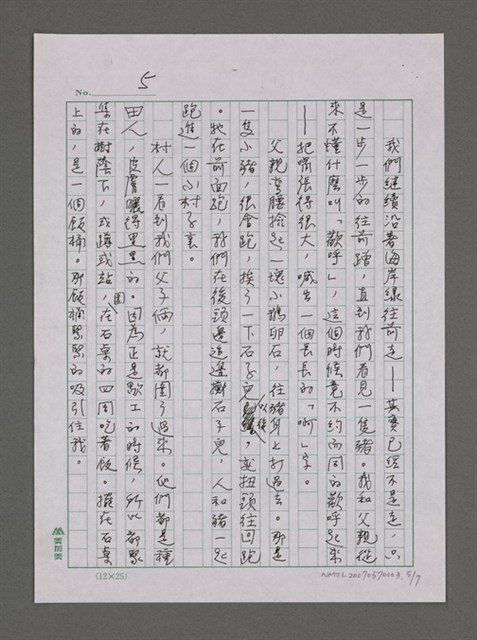 No. 5
我們繼續沿著海岸線往前走——其實已經不是走,只
是一步一步的往前蹭,直到我們看見一隻豬。我和父親從
來不懂什麼叫「歡呼」,這個時候竟不約而同的歡呼起來
——把嘴張得很大,喊出一個長長的「啊」字。
父親彎腰撿起一塊小鵝卵石,往豬身上打過去。那是
一隻小豬,很會跑,挨了一下石子兒以後,就扭頭往回跑
。牠在前面跑,我們在後頭邊追邊擲石子兒,人和豬一起
跑進一個小村子裏。
村人一看到我們父子倆,就都圍了過來。他們都是種
田人,皮膚曬得黑黑的。因為正是歇工的時候,所以都聚
集在樹蔭下,或蹲或站,圍在石桌的四周吃著飯。擺在石桌
上的,是一個飯桶。那飯桶緊緊的吸引住我。
美加美
(12×25)
NMTL20070570003, 5/7